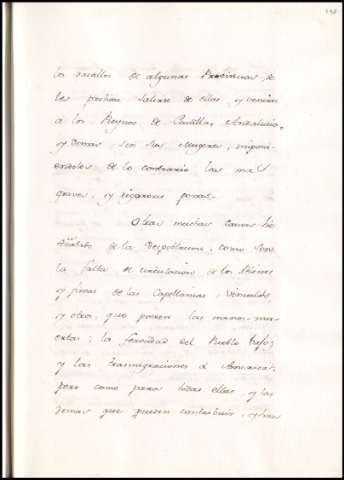 los vasallos de algunas Provincias, se
les prohiva salirse de ellas, y venirse
a los Reynos de Castilla, Andalucia,
y demas sin sus Mugeres, imponi-
endoles de lo contrario las mas
graves, y rigorosas penas.
Otras muchas causas he
de la Despoblacion, como son
la falta de circulacion de los bienes
y fincas de las Capellanias, vinculos,
y otros, que poseen las manos-mu-
ertas; la del Pueblo bajo;
y las transmigraciones à America;
pero como para todas ellas, y las
demas que pueden contribuir,